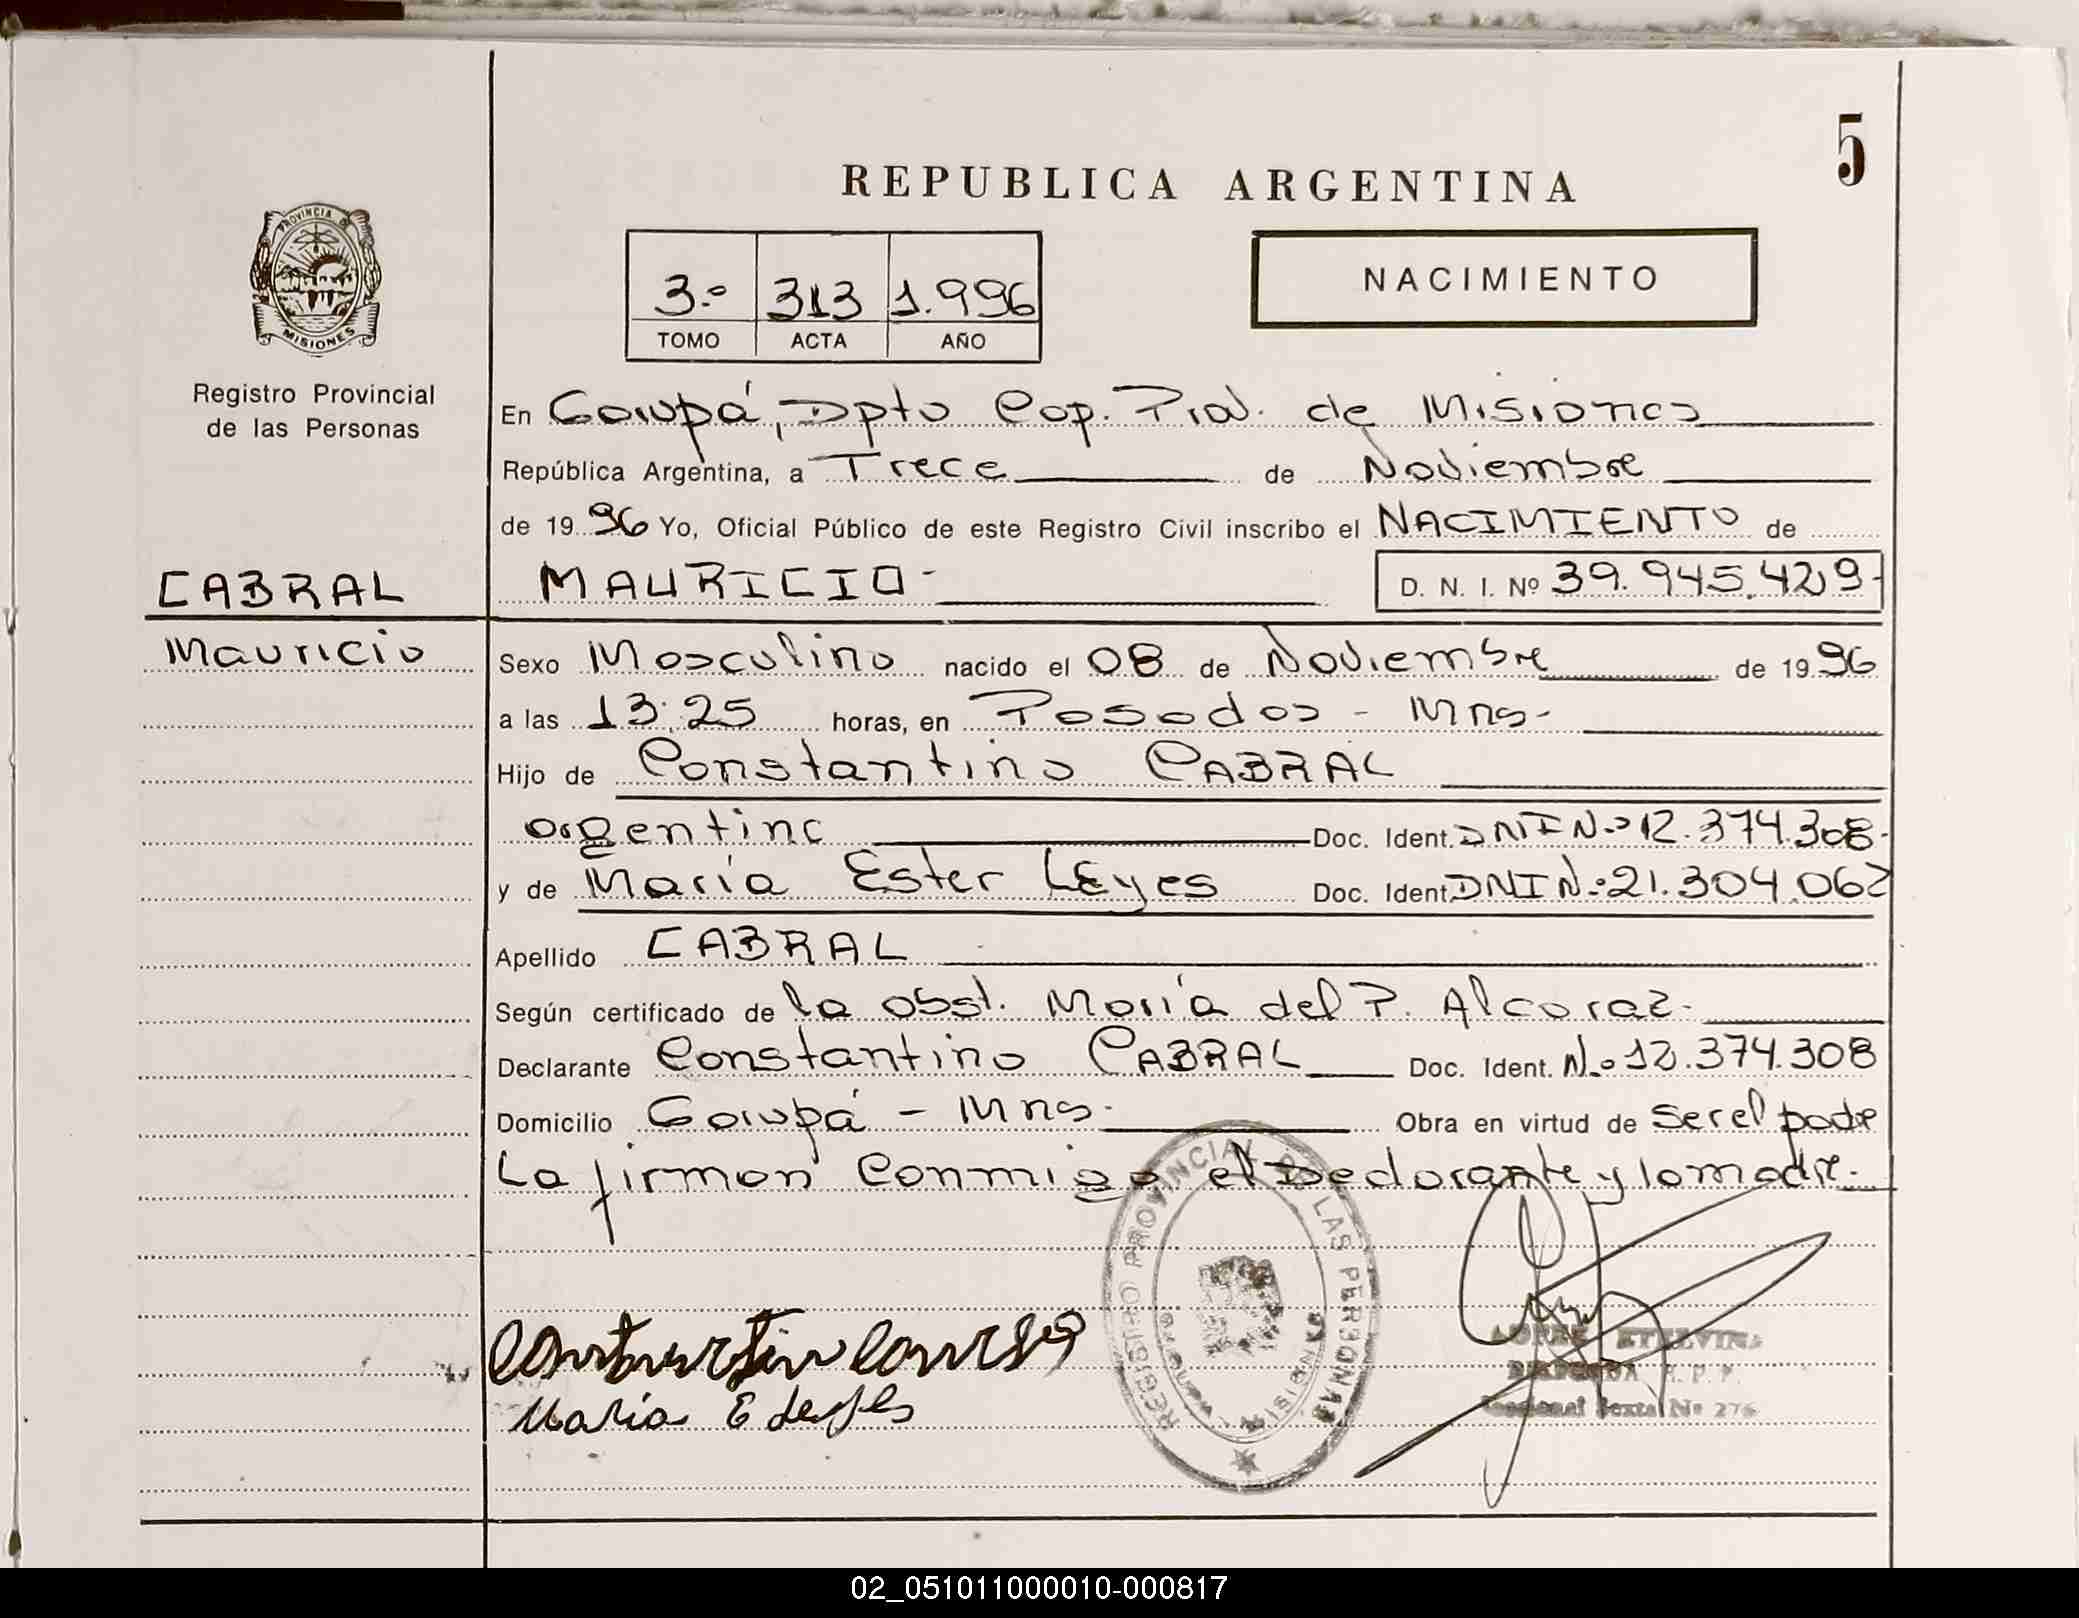 5
REPUBLICA ARGENTINA
PROVINCIA DE
MISIONES
Registro Provincial
de las Personas
3.º 313 1.996
TOMO ACTA AÑO
NACIMIENTO
En Garupá, Dpto Cap. Prov. de Misiones
República Argentina, a Trece de Noviembre
de 1996 Yo, Oficial Público de este Registro Civil inscribo el NACIMIENTO de
CABRAL
MAURICIO- D. N. I. Nº 39.945.429-
Mauricio
Sexo Masculino nacido el 08 de Noviembre de 1996
a las 13:25 horas, en Posadas - Mns-
Hijo de Constantino CABRAL
argentino Doc. Ident. DNI Nº 12.374.308-
y de María Ester LEyes Doc. Ident. DNI Nº 21.304.062
Apellido CABRAL
Según certificado de la obst. María del P. Alcaraz-
Declarante Constantino CABRAL Doc. Ident. Nº 12.374.308
Domicilio Garupá - Mns- Obra en virtud de ser el padre
La firman conmigo el Declarante y la madre.-
REGISTRO PROVINCIAL DE LAS PERSONAS
MISIONES
María E de
ETELVINA
R. P. P.
Sexta Nº 276
02_051011000010-000817